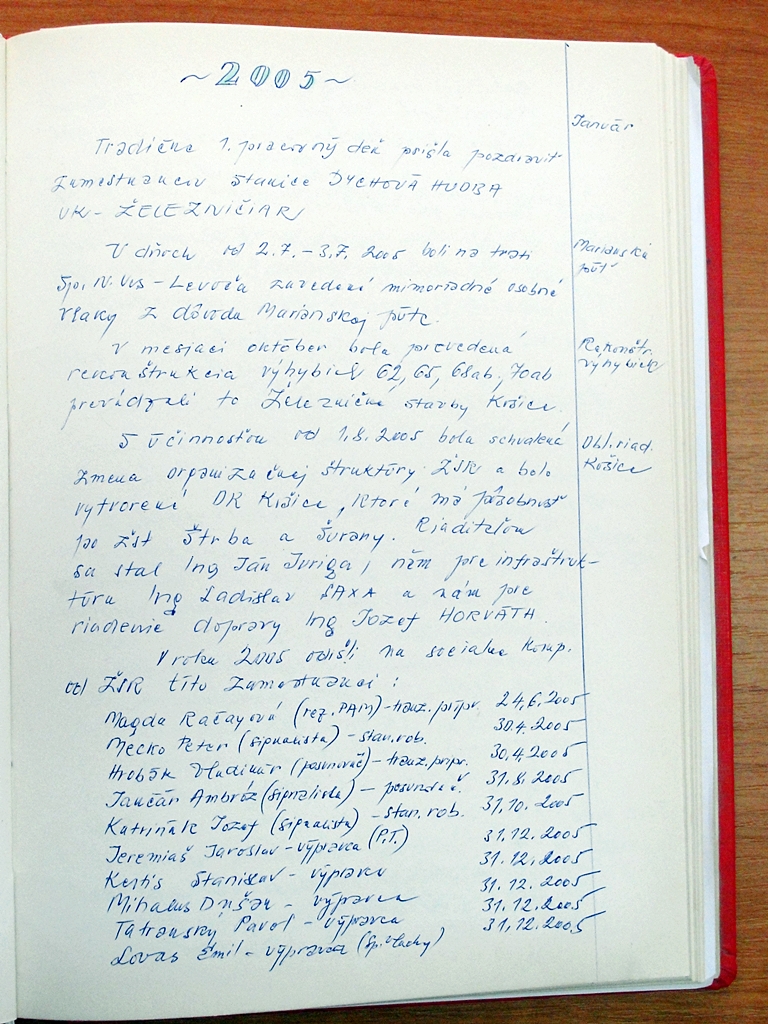 ~ 2005 ~
Január
Tradične 1. pracovný deň prišla pozdraviť
zamestnancov stanice DYCHOVÁ HUDBA
VK - ŽELEZNIČIAR
V dňoch od 2.7. - 3.7. 2005 boli na trati
Marianská
púť
Sp. N. Ves - Levoča zavedené mimoriadné osobné
vlaky z dôvodu Marianskej púte.
V mesiaci október bola prevedená
Rekonštr.
výhybiek
rekonštrukcia výhybiek 62, 65, 68ab, 70ab
prevádzali to Železničné stavby Košice.
S účinnosťou od 1.8.2005 bola schvalená
Obl. riad.
Košice
zmena organizačnej štruktúry ŽSR a bolo
vytvorené OR Košice, ktoré má pôsobnosť
po žst Štrba a Šurany. Riaditeľom
sa stal Ing Ján Juriga, nám pre infraštruk-
túru Ing Ladislav SAXA a nám pre
riadenie dopravy Ing Jozef HORVÁTH.
V roku 2005 odišli na socialne komp.
od ŽSR títo zamestnanci :
Magda Račayová (rez. PAM) - tranz. prípr. 24.6.2005
Mecko Peter (signalista) - stan. rob. 30.4.2005
Hrobák Vladimír (posunovač) - tranz. prípr. 30.4.2005
Jančár Ambróz (signalista) - posunovač. 31.8.2005
Katriňák Jozef (signalista) - stan. rob. 31.10.2005
Jeremiaš Jaroslav - výpravca (P.T.) 31.12.2005
Kertis Stanislav - výpravca 31.12.2005
Mihalus Dušan - výpravca 31.12.2005
Tatranský Pavol - výpravca 31.12.2005
Lovas Emil - výpravca (Sp. Vlachy) 31.12.2005